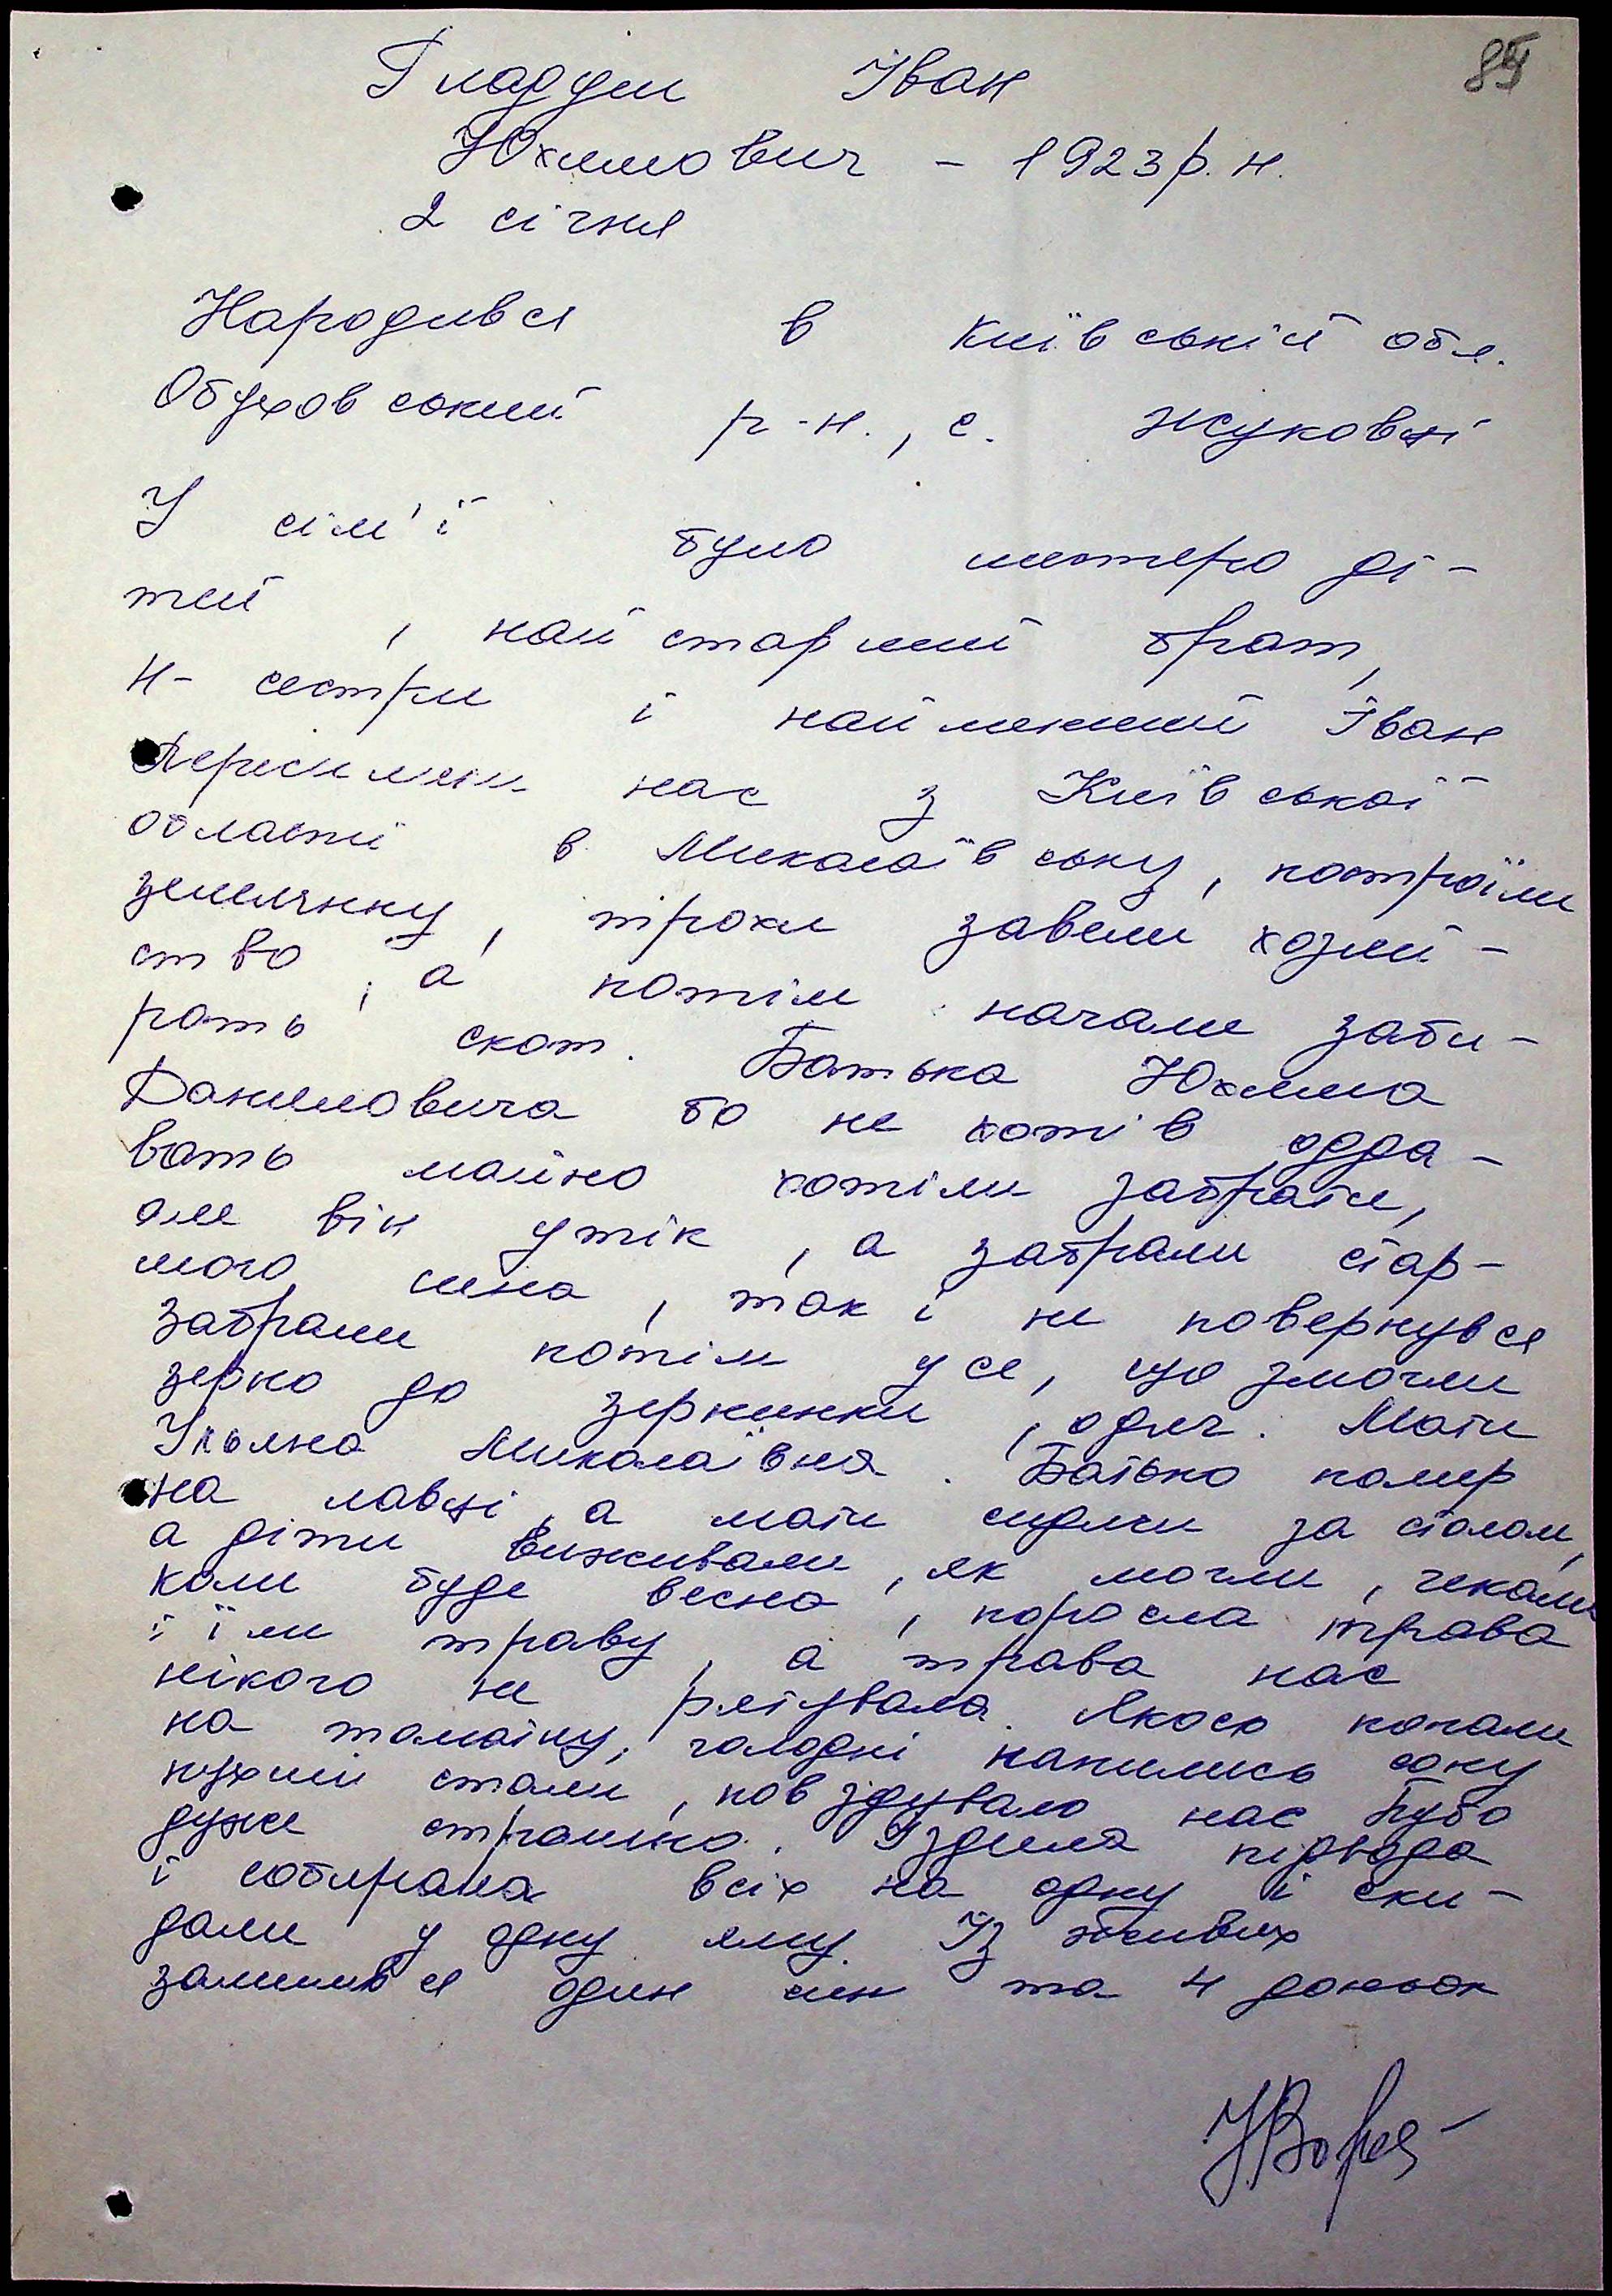 Гладун Іван
Юхимович - 1923 р. н.
2 січня
Народився в Київській обл.
Обуховський р-н., с. Жуковці
У сім'ї було шестеро ді-
тей, найстарший брат,
4- сестри і найменший Іван
Переселили нас з Київської
області в Миколаївську, построїли
землянку, трохи завели хозяй-
ство, а потім начали заби-
рать скот. Батька Юхима
Даниловича бо не хотів одда-
вать майно хотіли забрати,
але він утік, а забрали стар-
шого сина, так і не повернувся
забрали потім усе, що змогли
зерно до зернинки, одяг. Мати
Уляна Миколаївна. Батько помер
на лавці, а мати сидячи за столом,
а діти виживали, як могли, чекали
коли буде весна, поросла трава
і їли траву, а трава нас
нікого не рятувала. Якось напали
на томатку, голодні напились соку
пухлі стали, повздувало нас Було
дуже страшно. Їздила підвода
і собирала всіх на одну і ски-
дали у одну яму. Із живих
залишився один син та 4 доньок